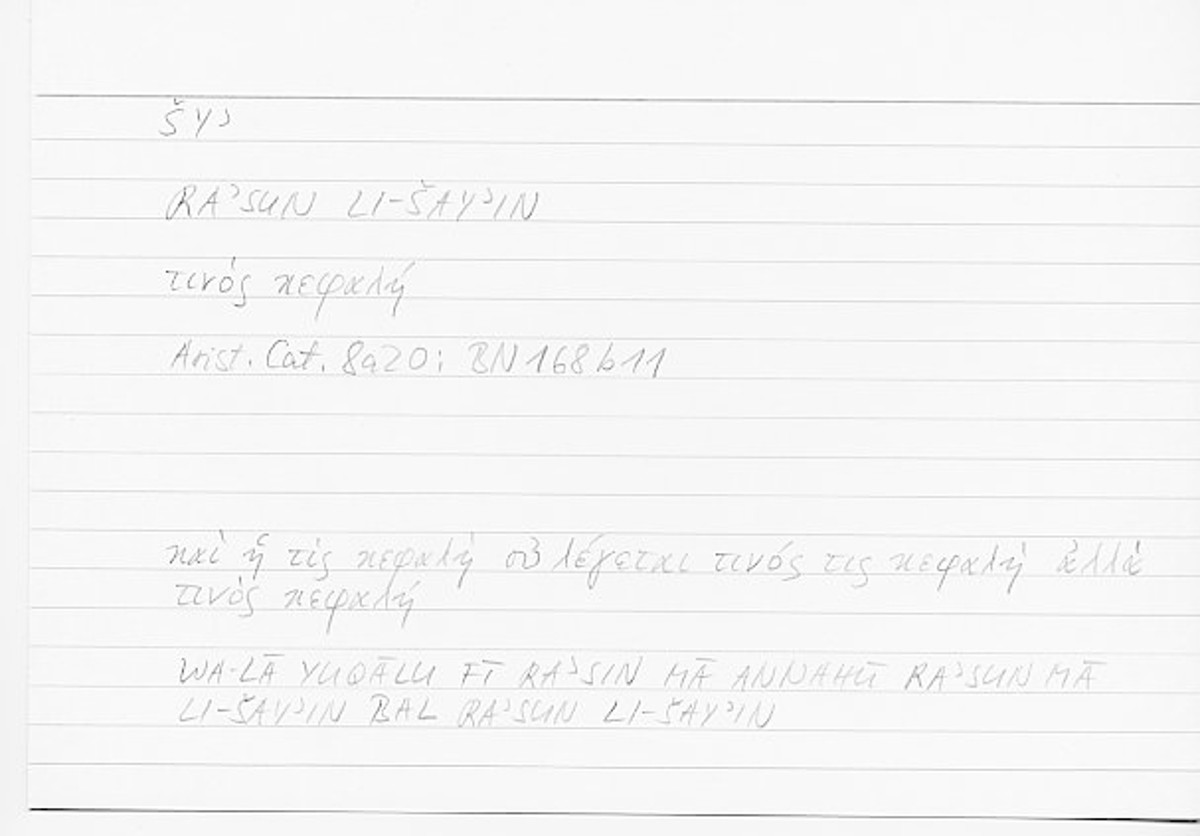 ŠYʾ
RAʾSUN LI-ŠAYʾIN
τινός κεφαλή
Arist. Cat. 8a20; BN 168b11
καὶ ἥ τὶς κεφαλὴ οὐ λέγεται τινός τις κεφαλὴ ἀλλὰ
τινὸς κεφαλή
WA-LĀ YUQĀLU FĪ RAʾSIN MĀ ANNAHŪ RAʾSUN MĀ
LI-ŠAYʾIN BAL RAʾSUN LI-ŠAYʾIN